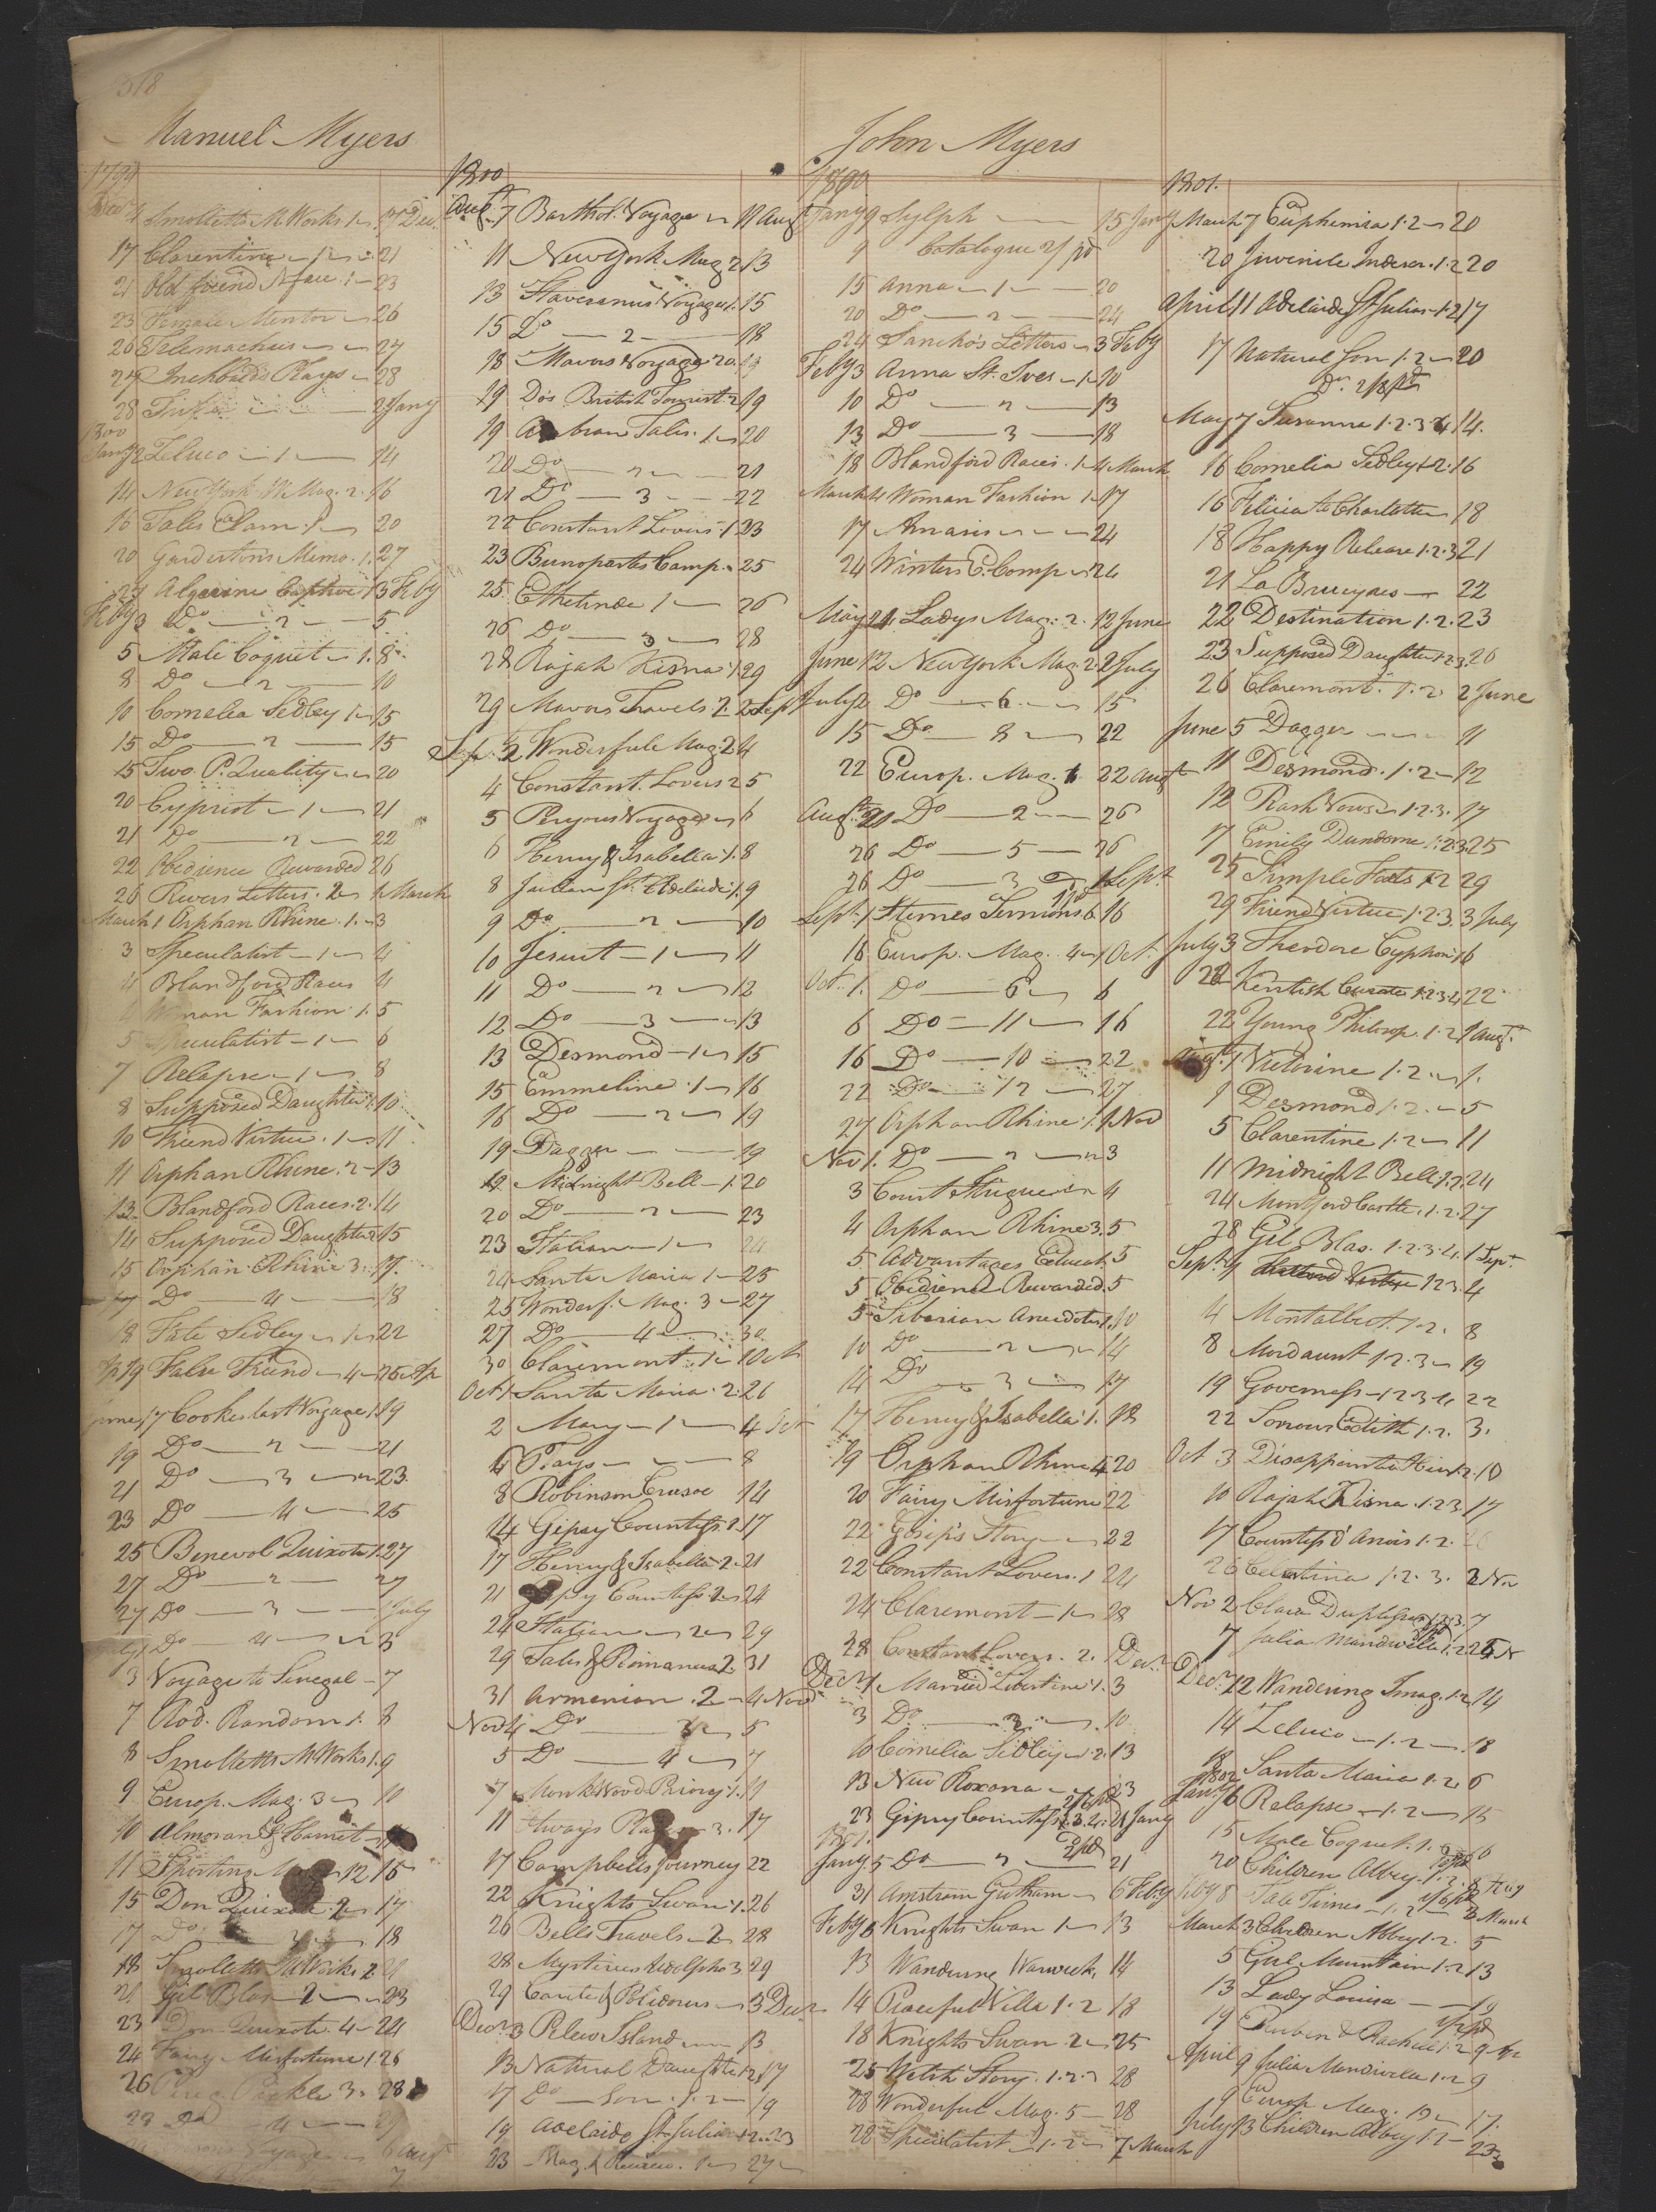 318
Manuel Myers
1799
Decr Smolletts M Works 1 17 Decr
17 Clarentine 1 21
21 Old friend N face 1 23
23 Female Mentor 26
26 Telemachus 27
27 Inchbalds Plays 28
28 2 Jany
1800
Jany 2 Zeluco 1 14
14 New York W Mag. 2 16
16 Tales Elam. 1 20
20 Mimo. 1. 27
27 Algerine Captive 1 3 Feby
Feby 3 Do 2 5
5 Male Coquet 1. 8
8 Do 2 10
10 Cornelia Sedley 1 15
15 Do 2 15
15 Two P. Quality 20
20 Cypriot 1 21
21 Do 2 22
22 Obedience Rewarded 26
26 Rivers Letters. 2 1 March
March 1 Orphan Rhine. 1. 3
3 Speculatist 1 4
4 Blandford Races 4
4 Woman Fashion 1 5
5 Speculatist 1 6
7 Relapse 1 8
8 Supposed Daughter 1. 10
10 Friend Virtue. 1 11
11 Orphan Rhine. 2 13
13 Blandford Races. 2. 14
14 Supposed Daughter 2 15
15 Orphan Rhine 3. 17.
17 Do 4 18
18 Fate Sedley 1 22
Ap 19 False Friend 4 26 Ap
June 17 Cookes last Voyage 1. 19
19 Do 2 21
21 Do 3 23.
23 Do 4 25
25 Benevol Quixote 1. 27
27 Do 2 27
27 Do 3 1 July
July 1 Do 4 3
3 Voyage to Senegal 7
7 Rod. Random 1. 8
8 Smolletts M Works 1. 9
9 Europ. Mag. 3 10
10 Almoran & Hamet
11 Sporting Mag 12 15
15 Don Quixote 2 17
17 Do 3 18
18 Smolletts M Works 2 21
21 Gil Blas 2 23
23 Don Quixote. 4 24
24 Fairy Misfortune 1 26
26 Pereg Pickle 3. 28
28 Do 4 29
1800
Augt 7 Barthol. Voyage 11 Augt
11 New York Mag 2 13
13 Stavorinus Voyages 1. 15
15 Do 2 18
18 Mavors Voyage 20. 19
19 Dos British Tourist 2 19
19 Arabian Tales. 1 20
20 Do 2 21
21 Do 3 22
22 Constant Lovers. 1 23
23 Buonopartes Camp. 25
25 Ethelinde 1 26
26 Do 3 28
28 Rajah Kisna 1. 29
29 Mavors Travels 2. 2 Sept
Sept. 2 Wonderfule Mag 2 4
4 Constant. Lovers 2 5
5 Peryous Voyage 6
6 Henry & Isabella. 1. 8
8 Julian St. Adelaide 1. 9
9 Do 2 10
10 Jesuit 1 11
11 Do 2 12
12 Do 3 13
13 Desmond 1 15
15 Emmeline. 1 16
16 Do 2 19
19 Dagger 19
19 Midnight Bell 1. 20
20 Do 2 23
23 Italian 1 24
24 Santa Maria 1 25
25 Wonderf. Mag. 3 27
27 Do 4 30
30 Claremont. 1 1 Oct
Oct 1 Santa Maria. 2. 26
2 Mary 1 4 Oct
4 Plays 8
8 Robinson Crusoe 14
14 Gipsy Countess. 1. 17
17 Henry & Isabella. 2. 21
21 Gipsy Countess 2 24
24 Italian 2 29
29 Tales & Romances 2. 31
31 Armenian. 2 4 Nov
Nov 4 Do 3 5
5 Do 4 7
7 Monkwood Priory. 1. 11
11 3. 17
17 Campbells Journey 22
22 Knights Swan. 1. 26
26 Bells Travels 2 28
28 Mysteries Udolpho 3 29
29 Carite & Polidorus 3 Decr
Decr 3 Pelew Island 13
13 Natural Daughter 1.2 17
17 Do Son. 1. 2 19
19 Adelaide St Julian 1.2. 23
23 Mag. & Review. 1 27
John Myers
1800
Jany 9 Sylph 15 Jany
9 Catalogue 2/ pd
15 Anna 1 20
20 Do 2 24
24 Sancho's Letters 3 Feby
Feby 3 Anna St. Ives 1 10
10 Do 2 13
13 Do 3 18
18 Blandford Races. 1 4 March
March 4 Woman Fashion 1 17
17 Amasis 24
24 Winters E. Comp 24
May 24 Ladys Mag. 2. 12 June
June 12 New York Mag. 2. 2 July
July 2 Do 6. 15
15 Do 8 22
22 Europ. Mag. 1 22 Augt
Augt 21 Do 2 26
26 Do 5 26
26 Do 3 1 Sept
Sept. 1 Sternes Sermons 6 16
16 Europ. Mag. 4 1 Oct.
Oct. 1. Do 6 6
6 Do 11 16
16 Do 10 22
22 Do 12 27
27 Orphan Rhine. 1. 1 Nov
Nov 1. Do 2 3
3 Court Intrigue 4
4 Orphan Rhine 3. 5
5 Advantages Educat. 5
5 Obedience Rewarded. 5
5 Siberian Anecdotes 1. 10
10 Do 2 14
14 Do 3 17
17 Henry & Isabella. 1. 19
19 Orphan Rhine 4 20
20 Fairy Misfortune 22
22 Gosip's Story 22
22 Constant Lovers. 1 24
24 Claremont 1 28
28 Constant Lovers. 2. 1 Decr
Decr 1 Married Libertine. 1. 3
3 Do 2 10
10 Cornelia Sedley 1. 2. 13
13 New Roxana 23
23 Gipsy Countess 1. 3. 4. 2/6 pd 5 Jany
1801.
Jany 5 Do 2 2/ pd 21
31 Amstrem Gutham 6 Feby
Feby 6 Knights Swan 1 13
13 Wandering Warwick, 14
14 Peaceful Villa 1. 2 18
18 Knights Swan 2 25
25 Welch Story. 1. 2. 3 28
28 Wonderful Mag. 5 28
28 Speculatist 1. 2 7 March
1801.
March 7 Euphemia 1. 2 20
20 Juvenile Indiscr. 1. 2 20
April 11 Adelaide St Julian 1. 2 17
17 Natural Son 1. 2 20
Do. 2/8 pd
May 7 Susanna 1. 2. 3. 4 14.
16 Cornelia Sedley 1. 2. 16
16 Felicia to Charlotte 18
18 Happy Release 1. 2. 3 21
21 La Bruyeres 22
22 Destination 1. 2. 23
23 Supposed Daughter 1. 2. 3. 26
26 Claremont. 1. 2 2 June
June 5 Dagger 11
11 Desmond. 1. 2 12
12 Rash Vows 1. 2. 3. 17
17 Emily Dundorne. 1. 2. 3. 25
25 Simple Facts 1. 2 29
29 Friend Virtue 1. 2. 3. 3 July
July 3 Theodore Cyphon 16
22 Kentish Curate 1. 2. 3. 4 22
22 Young Philosop. 1. 2 1 Augt.
Augt. 1 Victorine 1. 2. 1.
1 Desmond 1. 2. 5
5 Clarentine 1. 2 11
11 Midnight Bell 1. 2. 24
24 Montford Castle. 1. 2. 27
28 Gil Blas. 1. 2. 3. 4. 1 Sept.
Sept. 4 1 2 3. 4
4 Montalbert. 1. 2. 8
8 Mordaunt 1. 2. 3 19
19 Governess 1. 2. 3. 4 22
22 Sorrows Edith 1. 2. 3.
Oct 3 Disappointed Heir 1. 2. 10
10 Rajah Kisna. 1. 2. 3. 17
17 Countess d'Anois 1. 2. 26
26 Celestina 1. 2. 3. 2 Nov
Nov 2 Clara Duplessis 1. 2. 3. 7
7 Julia Mandeville 1. 2
Decr 12 Wandering Imag. 1. 2 14
14 Zeluco 1. 2 18
18 Santa Maria 1. 2. 6
1802
Jany 6 Relapse 1. 2 15
15 Male Coquet. 1. 2 20
20 Children Abbey. 1. 2. 8 Feby
Feby 8 Tale Times 1. 2 3 March
March 3 Children Abbey 1. 2. 5
5 Girl Mountain 1. 2 13
13 Lady Louisa 19
19 Reuben & Rachel 1. 2 9 Ap
April 9 Julia Mandivilla 1. 2 9
9 Europ Mag. 10 17.
July 13 Children Abbey 1. 2 23